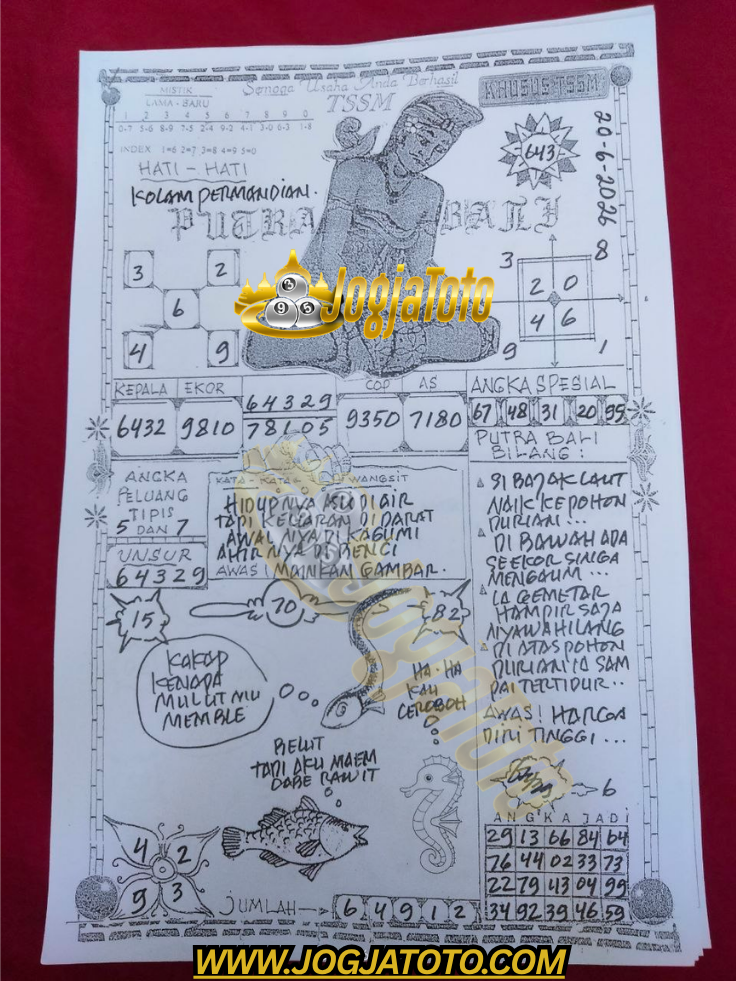 Semoga Usaha Anda Berhasil
TSSM
MISTIK
LAMA - BARU
1 2 3 4 5 6 7 8 9 0
0-7 5-6 8-9 7-5 2-4 9-2 4-1 3-0 6-3 1-8
INDEX 1=6 2=7 3=8 4=9 5=0
KHUSUS TSSM
643
20-6-2026
HATI - HATI
KOLAM PERMANDIAN.
PUTRA BALI
3 2
6
4 9
3 8
2 0
4 6
9 1
9 5
JogjaToto
KEPALA EKOR
6432 9810
64329
78105
COP AS
9350 7180
ANGKA SPESIAL
67 48 31 20 95
PUTRA BALI
BILANG :
ANGKA
PELUANG
TIPIS
5 DAN 7
UNSUR
64329
KATA - KATA WANGSIT
HIDUPNYA KU DI AIR
TAPI KELUARAN DI DARAT
AWALNYA DI KAGUMI
AHIRNYA DI BENCI
AWAS! MAINKAN GAMBAR.
SI BAJAK LAUT
NAIK KE POHON
DURIAN ...
DI BAWAH ADA
SEEKOR SINGA
MENGAUM ...
IA GEMETAR
HAMPIR SAJA
NYAWA HILANG
DI ATAS POHON
DURIAN IA SAM
PAI TERTIDUR ..
AWAS! HARGA
DIRI TINGGI ...
15
70
82
KAKAP
KENAPA
MULUT MU
MEMBLE
HA - HA
KAU
CEROBOH
BELUT
TAPI AKU MAEM
CABE RAWIT
6
ANGKA JADI
29 13 66 84 64
76 44 02 33 73
22 79 43 04 99
34 92 39 46 59
4 2
9 3
JUMLAH → 6 4 9 1 2
Jogjatoto
WWW.JOGJATOTO.COM